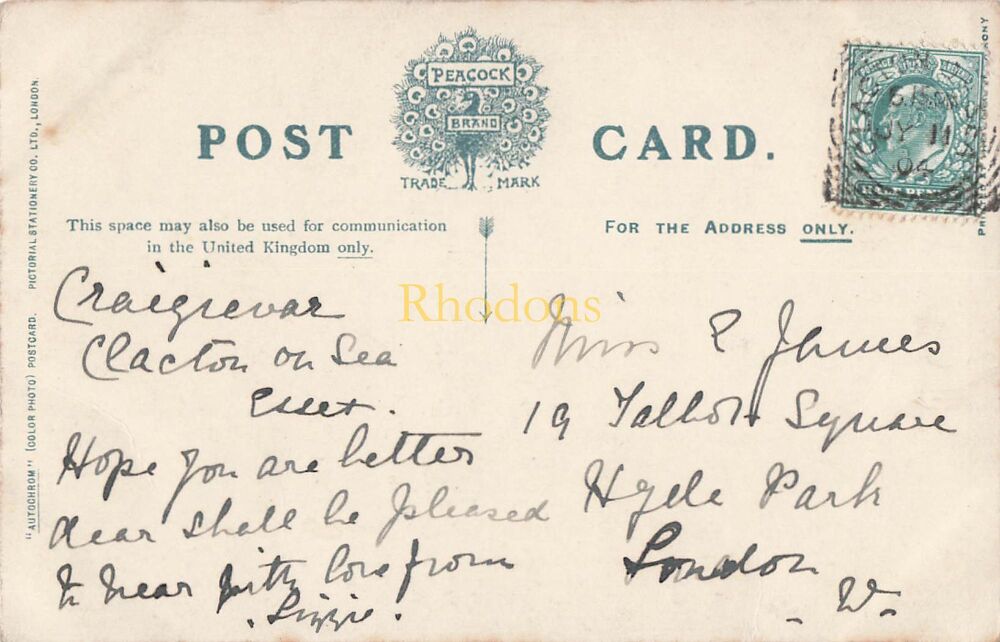 PEACOCK
BRAND
TRADE MARK
POST CARD.
This space may also be used for communication
in the United Kingdom only.
FOR THE ADDRESS ONLY.
"AUTOCHROM" (COLOR PHOTO) POSTCARD. PICTORIAL STATIONERY CO. LTD., LONDON.
Craigievar
Clacton on Sea
Essex.
Hope you are better
dear shall be pleased
to hear with love from
Lizzie.
Miss E James
19 Talbot Square
Hyde Park
London
W.
JY 11
04
Rhodons